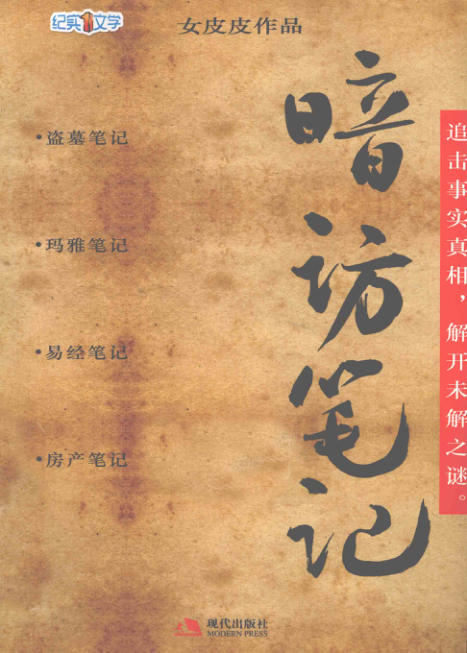 纪实1文学
女皮皮作品
暗访笔记
追击事实真相，解开未解之谜。
•盗墓笔记
•玛雅笔记
•易经笔记
•房产笔记
现代出版社
MODERN PRESS